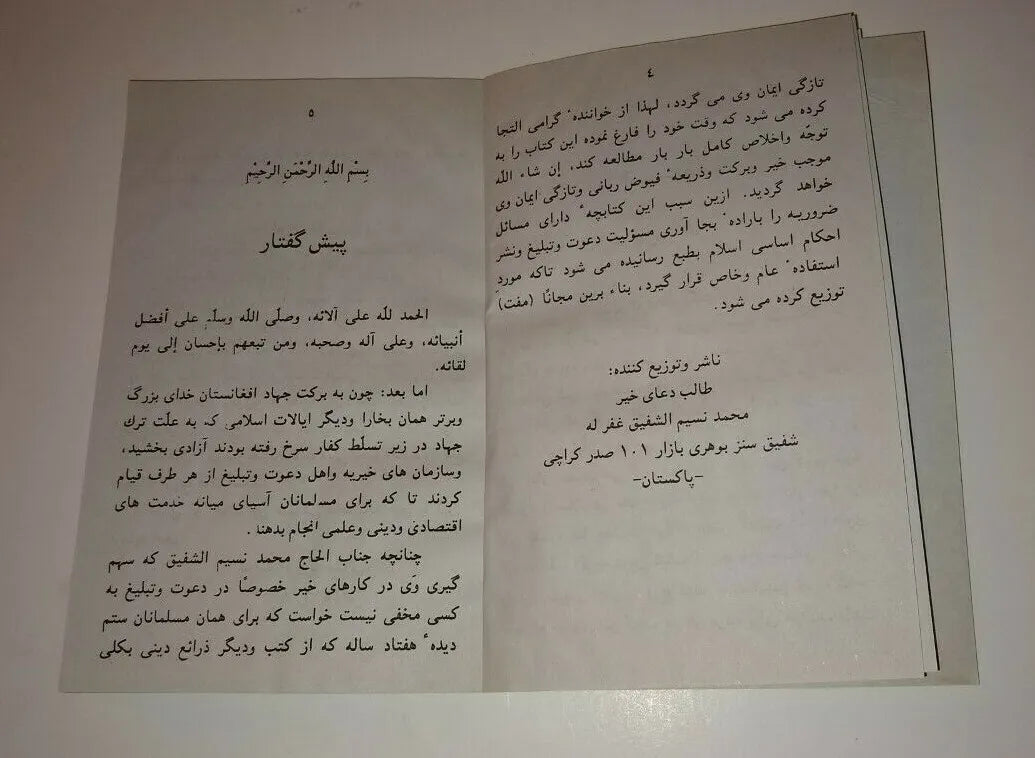 ٤
تازگی ایمان وی می گردد، لهذا از خوانندهٔ گرامی التجا
کرده می شود که وقت خود را فارغ نموده این کتاب را به
توجّه واخلاص کامل بار بار مطالعه کند، إن شاء اللّه
موجب خیر وبرکت وذریعهٔ فیوض ربانی وتازگی ایمان وی
خواهد گردید. ازین سبب این کتابچهٔ دارای مسائل
ضروریه را بارادهٔ بجا آوری مسؤلیت دعوت وتبلیغ ونشر
احکام اساسی اسلام بطبع رسانیده می شود تاکه موردِ
استفادهٔ عام وخاص قرار گیرد، بناء برین مجانًا (مفت)
توزیع کرده می شود.
ناشر وتوزیع کننده:
طالب دعای خیر
محمد نسیم الشفیق غفر له
شفیق سنز بوهری بازار ۱۰۱ صدر کراچی
-پاکستان-
٥
بِسْمِ اللّهِ الرَّحْمَنِ الرَّحِیْمِ
پیش گفتار
الحمد للّه علی آلائه، وصلّی اللّه وسلّم علی أفضل
أنبیائه، وعلی آله وصحبه، ومن تبعهم بإحسان إلی یوم
لقائه.
اما بعد: چون به برکت جهاد افغانستان خدای بزرگ
وبرتر همان بخارا ودیگر ایالات اسلامی که به علّت ترك
جهاد در زیر تسلّط کفار سرخ رفته بودند آزادی بخشید،
وسازمان های خیریه واهل دعوت وتبلیغ از هر طرف قیام
کردند تا که برای مسلمانان آسیای میانه خدمت های
اقتصادی ودینی وعلمی انجام بدهند.
چنانچه جناب الحاج محمد نسیم الشفیق که سهم
گیری وَی در کارهای خیر خصوصًا در دعوت وتبلیغ به
کسی مخفی نیست خواست که برای همان مسلمانان ستم
دیدهٔ هفتاد ساله که از کتب ودیگر ذرائع دینی بکلی